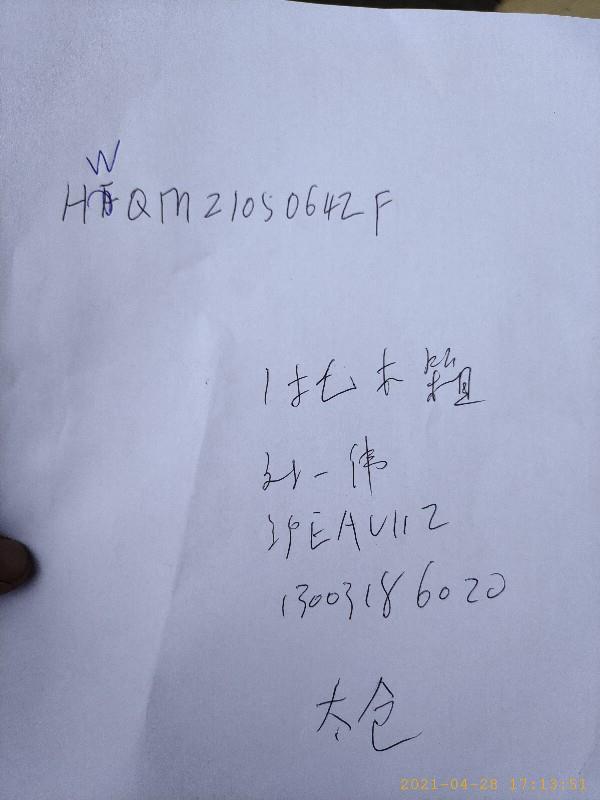 HWQM21050642F
1托木箱
刘一伟
沪EAV112
13003186020
太仓
2021-04-28 17:13:51